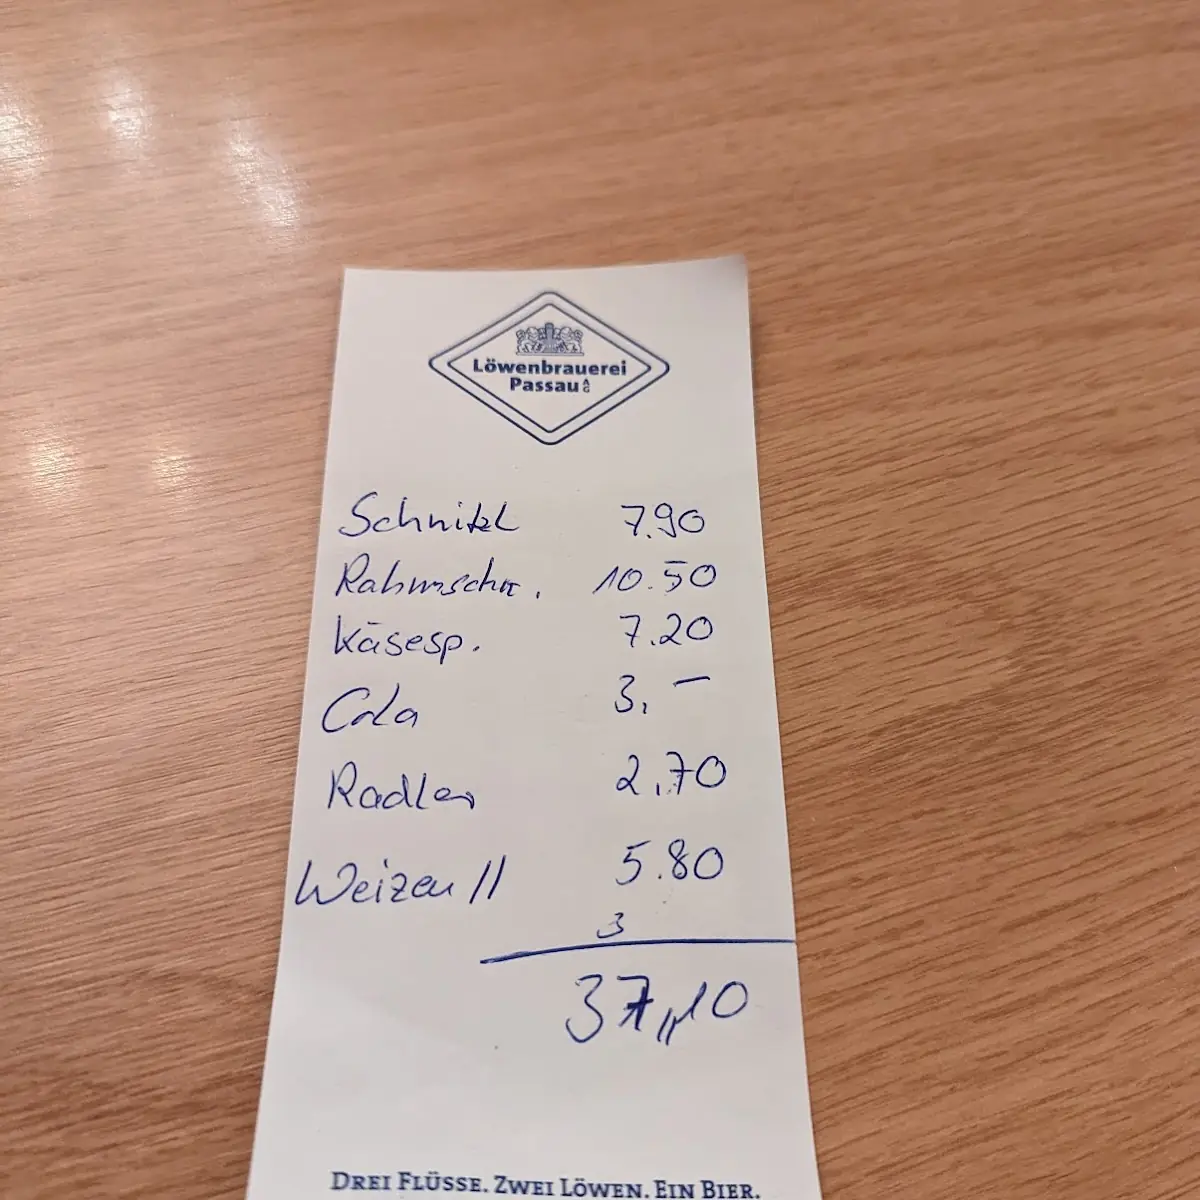 Löwenbrauerei
Passau AG
Schnitzl 7.90
Rahmschn. 10.50
Käsesp. 7.20
Cola 3,–
Radler 2,70
Weizen // 5.80
3
37,10
DREI FLÜSSE. ZWEI LÖWEN. EIN BIER.